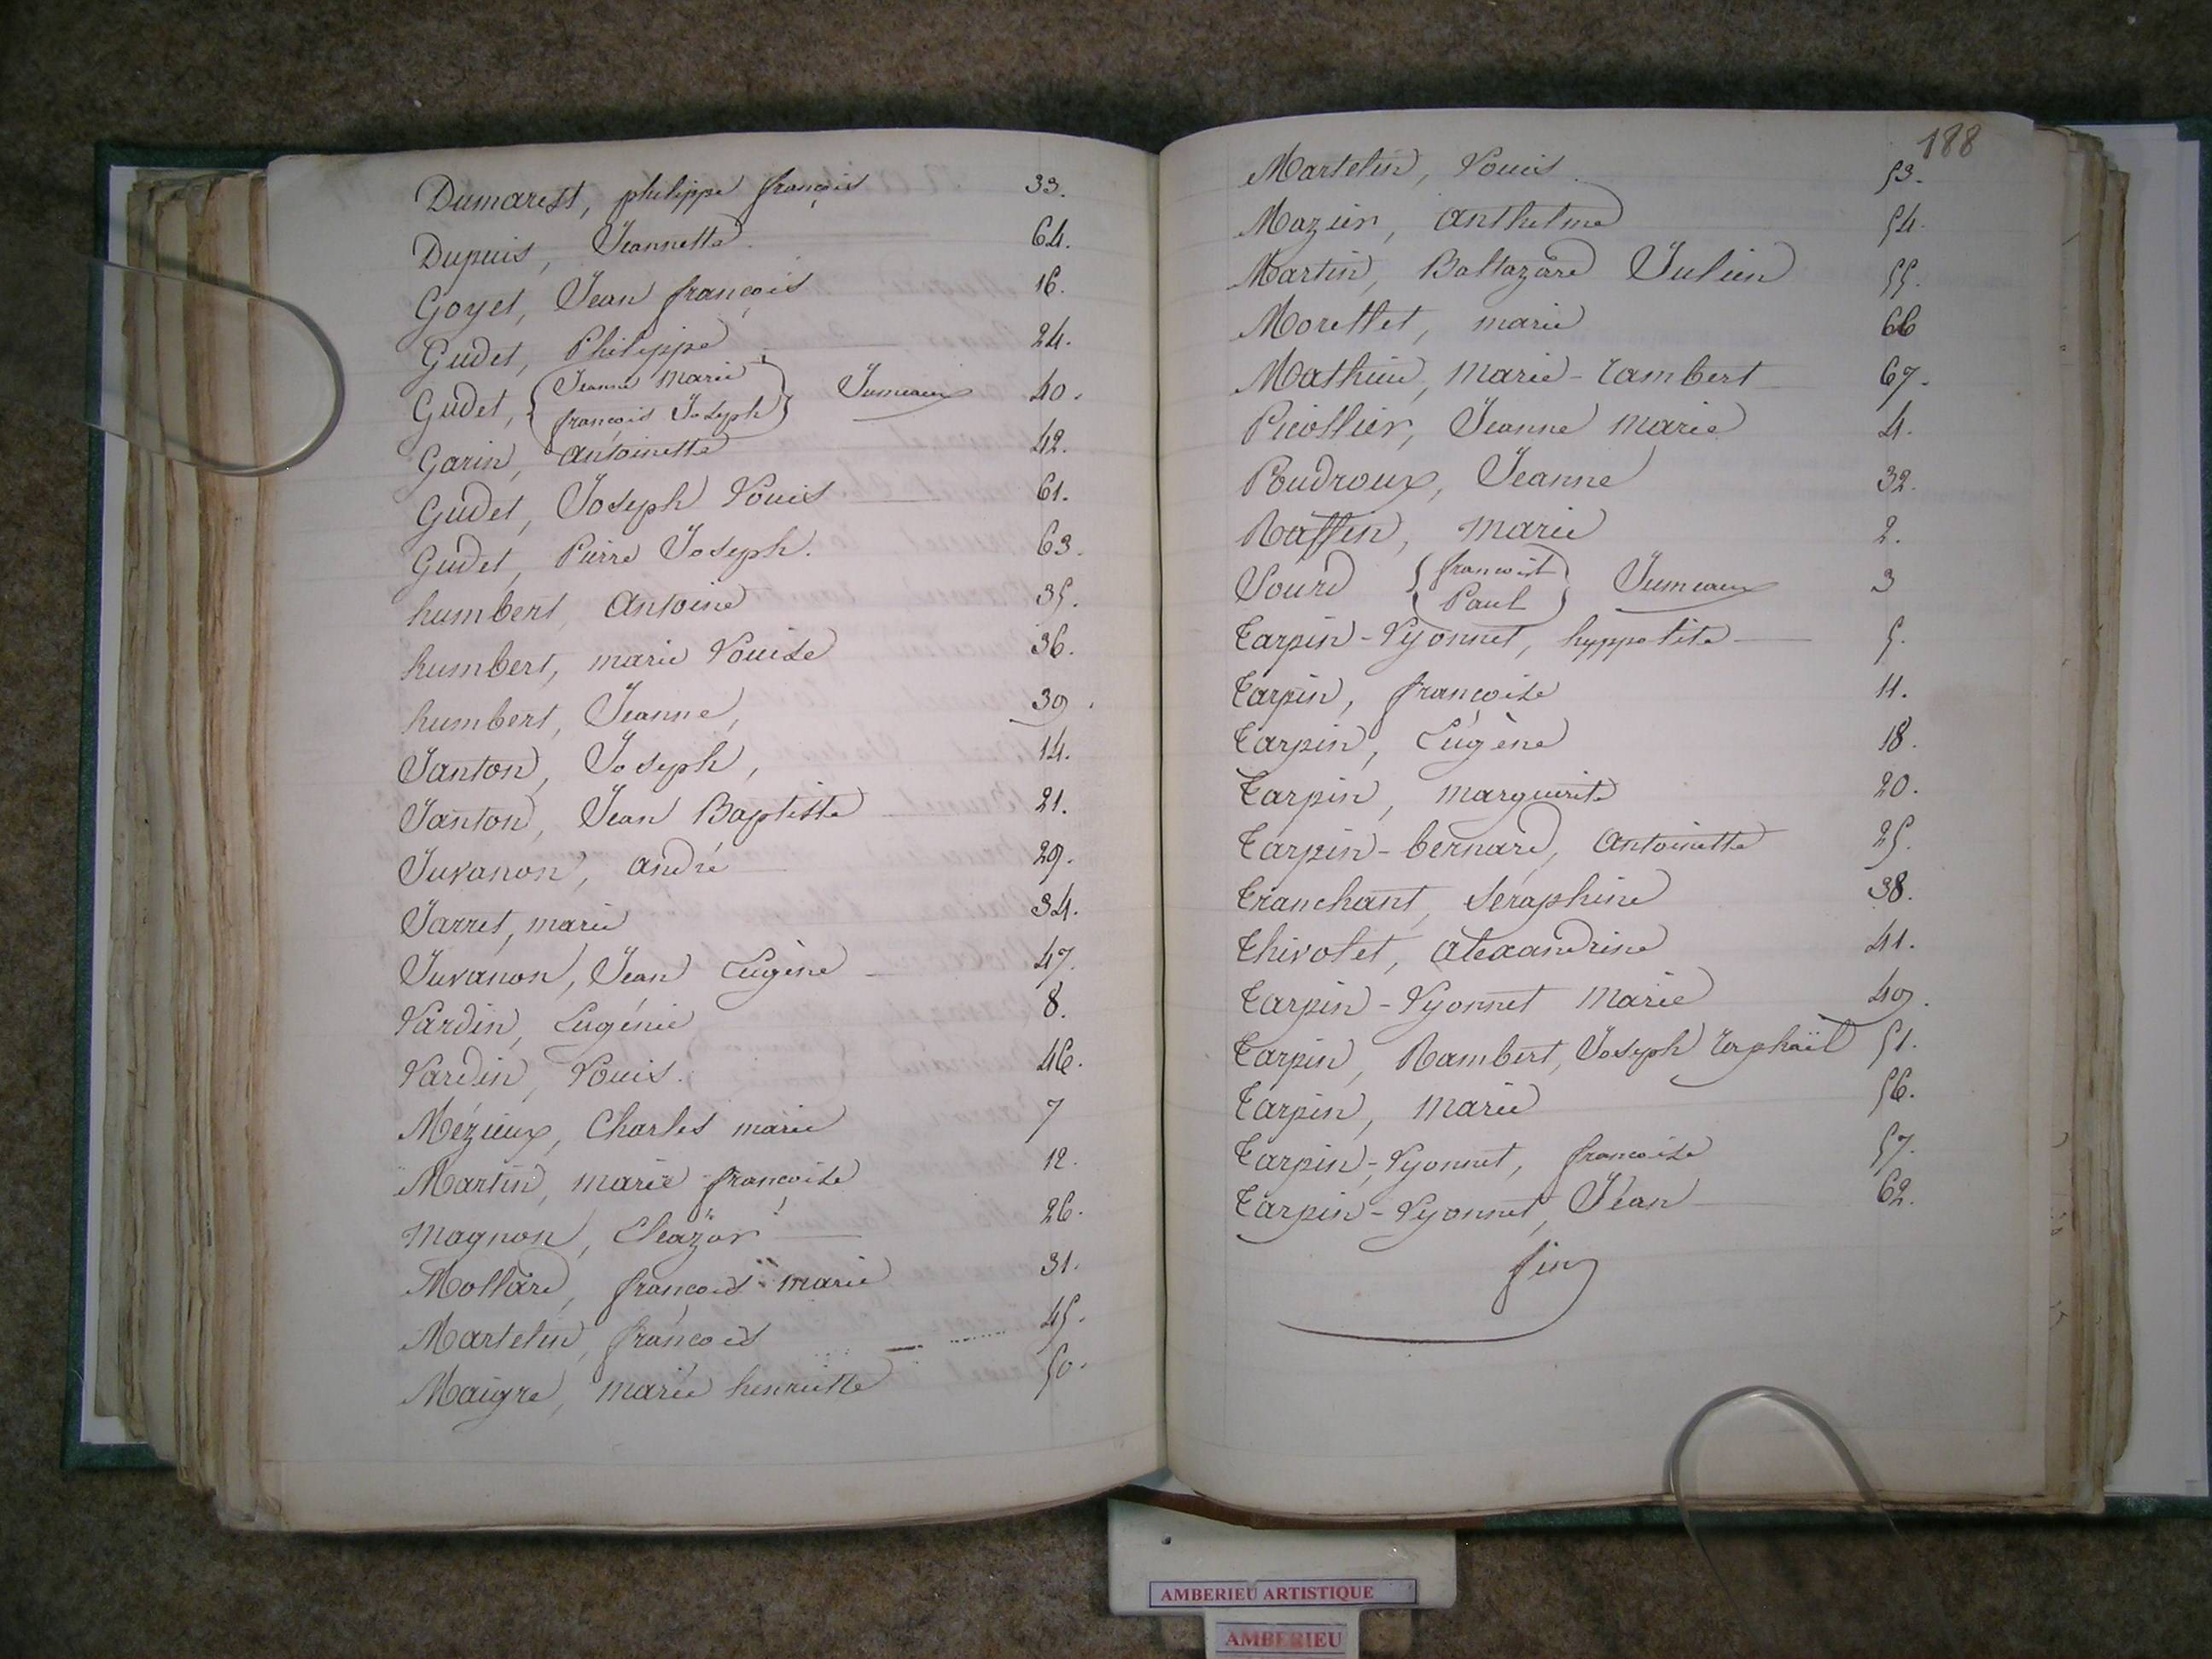 Dumarest, philippe françois 33.
Dupuis, Jeannette 64.
Goyet, Jean françois 16.
Gudet, Philippe 24.
Gudet, { Jeanne Marie
françois Joseph } Jumeaux 40.
Garin, Antoinette 42.
Gudet, Joseph Louis 61.
Gudet, Pierre Joseph. 63.
humbert, Antoine 35.
humbert, marie Louise 36.
humbert, Jeanne, 39.
Janton, Joseph, 14.
Janton, Jean Baptiste 21.
Juvanon, andré 29.
Jarret, marie 34.
Juvanon, Jean Eugène 47.
Lardin, Eugénie 8.
Lardin, Louis. 46.
Mézieux, Charles marie 7
Martin, marie françoise 12.
Magnon, Eléazar 26.
Mollard, françois marie 31.
Martelin, françois 45.
Maigre, marie henriette 50.
188
Martelin, Louis 53.
Mazuir, Anthelme 54.
Martin, Baltazard Julien 55.
Morettet, marie 66
Mathieu, Marie-rambert 67.
Picollier, Jeanne Marie 4.
Poudroux, Jeanne 32.
Raffin, Marie 2.
Sourd { françois
Paul } Jumeaux 3
Tarpin-Lyonnet, hyppolite 5.
Tarpin, françoise 11.
Tarpin, Eugène 18.
Tarpin, marguerite 20.
Tarpin-bernard, Antoinette 25.
Tranchant, Séraphine 38.
Thivolet, Alexandrine 41.
Tarpin-Lyonnet Marie 49.
Tarpin, Rambert, Joseph raphaïl 51.
Tarpin, Marie 56.
Tarpin-Lyonnet, françoise 57.
Tarpin-Lyonnet, Jean 62.
fin
AMBERIEU ARTISTIQUE
AMBERIEU